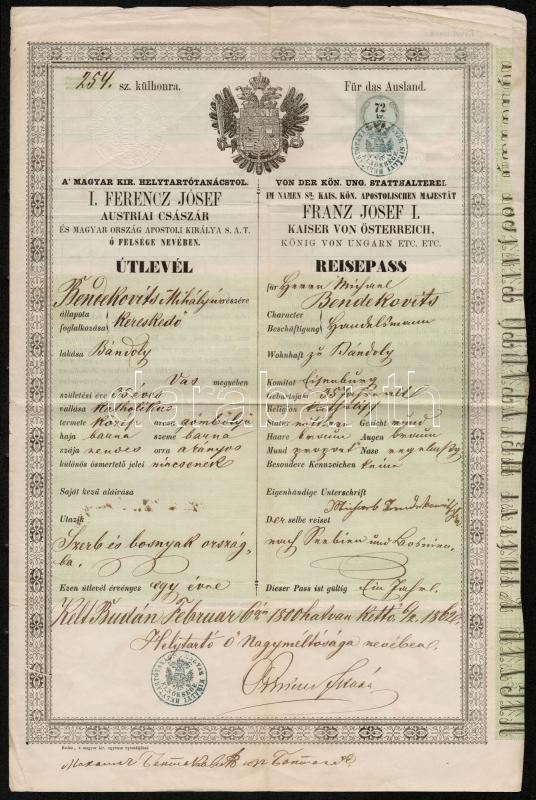 254. sz. külhonra.
Für das Ausland.
72
kr.
A' MAGYAR KIR. HELYTARTÓTANÁCSTOL.
I. FERENCZ JÓSEF
AUSTRIAI CSÁSZÁR
ÉS MAGYAR ORSZÁG APOSTOLI KIRÁLYA S. A. T.
Ő FELSÉGE NEVÉBEN.
ÚTLEVÉL
Bentekovits Mihály úr részére
állapota
foglalkozása kereskedő
lakása Bándoly
Vas megyében
születési éve 35 éves
vallása katholikus
termete közép arcza gömbölyü
haja barna szeme barna
szája rendes orra arányos
különös ösmertető jelei nincsenek
Saját kezű aláirása
Utazik
Szerb és bosnyak ország-
ba.
Ezen útlevél érvényes egy évre
VON DER KÖN. UNG. STATTHALTEREI.
IM NAMEN Sr. KAIS. KÖN. APOSTOLISCHEN MAJESTÄT
FRANZ JOSEF I.
KAISER VON ÖSTERREICH,
KÖNIG VON UNGARN ETC. ETC.
REISEPASS
für Herrn Michael
Bendekovits
Character
Beschäftigung Handelsmann
Wohnhaft zu Bándoly
Komitat Eisenburg
Geburtsjahr 35 Jahre alt
Religion katholisch
Statur mittlere Gesicht rund
Haare braun Augen braun
Mund Nase
Besondere Kennzeichen keine
Eigenhändige Unterschrift
Michael
Derselbe reiset
nach Serbien und Bosnien.
Dieser Pass ist gültig Ein Jahr.
Kelt Budán Februar 6án 1800 hatvan Kettő 6/2 1862.
Helytartó Ő Nagyméltósága nevében.
darabanth